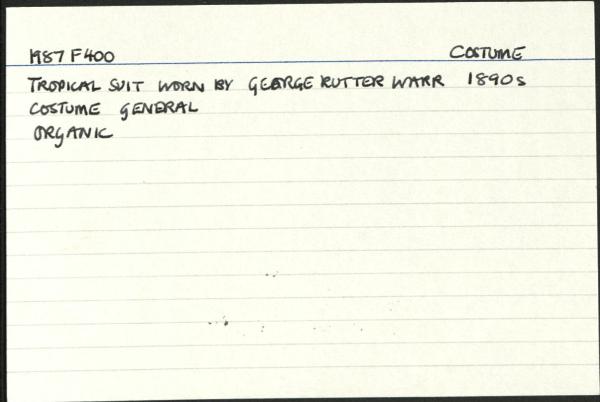 1987 F400 COSTUME
TROPICAL SUIT WORN BY GEORGE RUTTER WARR 1890s
COSTUME GENERAL
ORGANIC